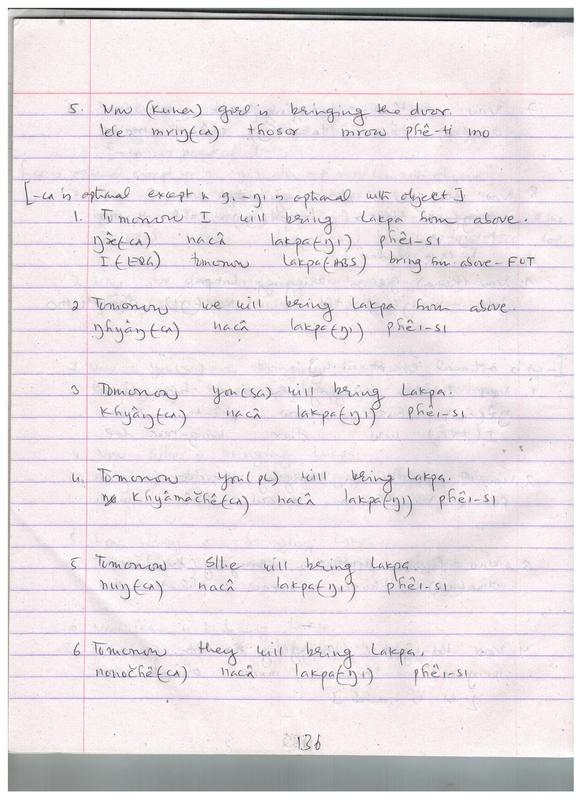 5. Now (Kuner) girl is bringing the door.
lese mriŋ(-cʌ) thosor mrow phê-ti mo
[-cʌ is optional except in 9, -ŋɪ is optional with object]
1. Tomorrow I will bring Lakpa from above.
ŋx̂(-cʌ) nacâ lakpa(-ŋɪ) phêɪ-sɪ
I(-ERG) tomorrow Lakpa(-ABS) bring from above-FUT
2. Tomorrow we will bring Lakpa from above.
ŋhyâŋ(-cʌ) nacâ lakpa(-ŋɪ) phêɪ-sɪ
3 Tomorrow you(SG) will bring Lakpa.
khyâŋ(-cʌ) nacâ lakpa(-ŋɪ) phêɪ-sɪ
4. Tomorrow you(PL) will bring Lakpa.
khyâmačhê(-cʌ) nacâ lakpa(-ŋɪ) phêɪ-sɪ
5 Tomorrow S/he will bring Lakpa.
nuŋ(-cʌ) nacâ lakpa(-ŋɪ) phêɪ-sɪ
6 Tomorrow they will bring Lakpa.
nonočhê(-cʌ) nacâ lakpa(-ŋɪ) phêɪ-sɪ
136